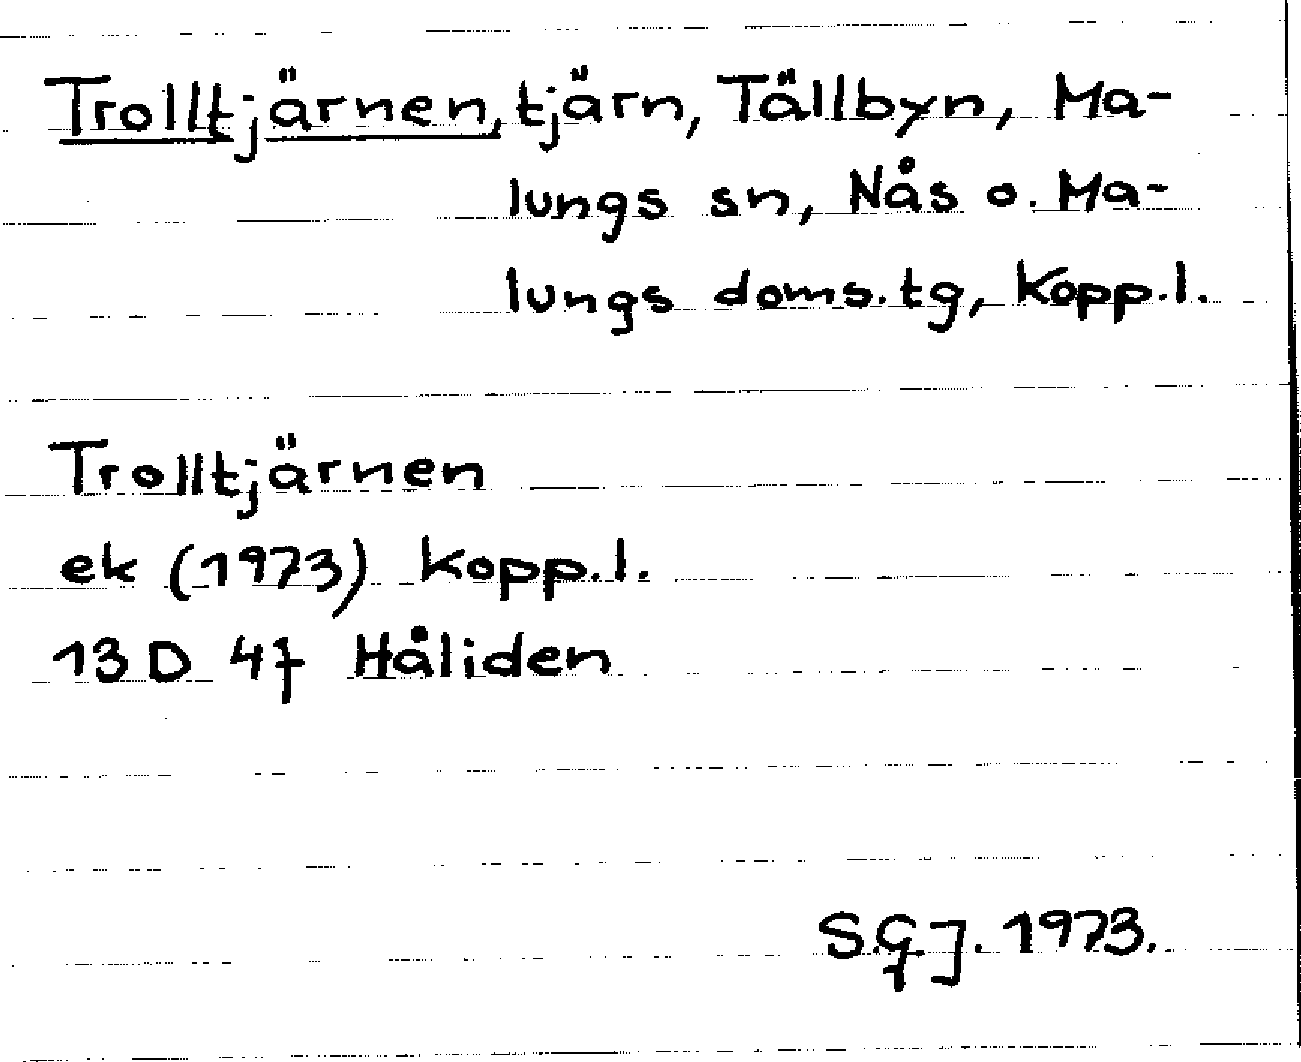 Trolltjärnen, tjärn, Tällbyn, Ma-
lungs sn, Nås o. Ma-
lungs doms.tg, Kopp.l.
Trolltjärnen
ek (1973) Kopp.l.
13 D 4f Håliden
S.G.J. 1973.